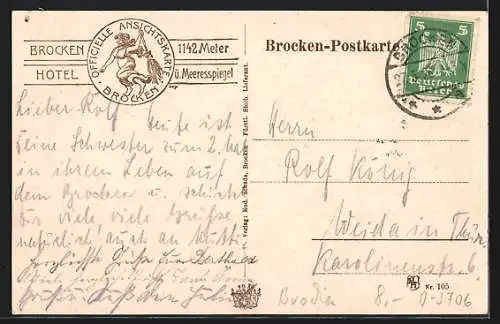 BROCKEN
HOTEL
OFFICIELLE ANSICHTSKARTE
BROCKEN
1142 Meter
ü. Meeresspiegel
Brocken-Postkarte
5 5
BROCKEN
Deutsches
Reich
Lieber Rolf Heute ist
Deine Schwester zum 2. Mal
in ihrem Leben auf
dem Brocken u. schickt
Dir viele viele Grüsse
natürlich auch an Mutti
Herzlichste Grüsse
Verlag: Rud. Schade, Brocken. Fürstl. Stolb. Lieferant.
Herrn
Rolf König
Weida in Thür.
Karolinenstr. 6.
Nr. 105
Brocken 8,- 0-3706